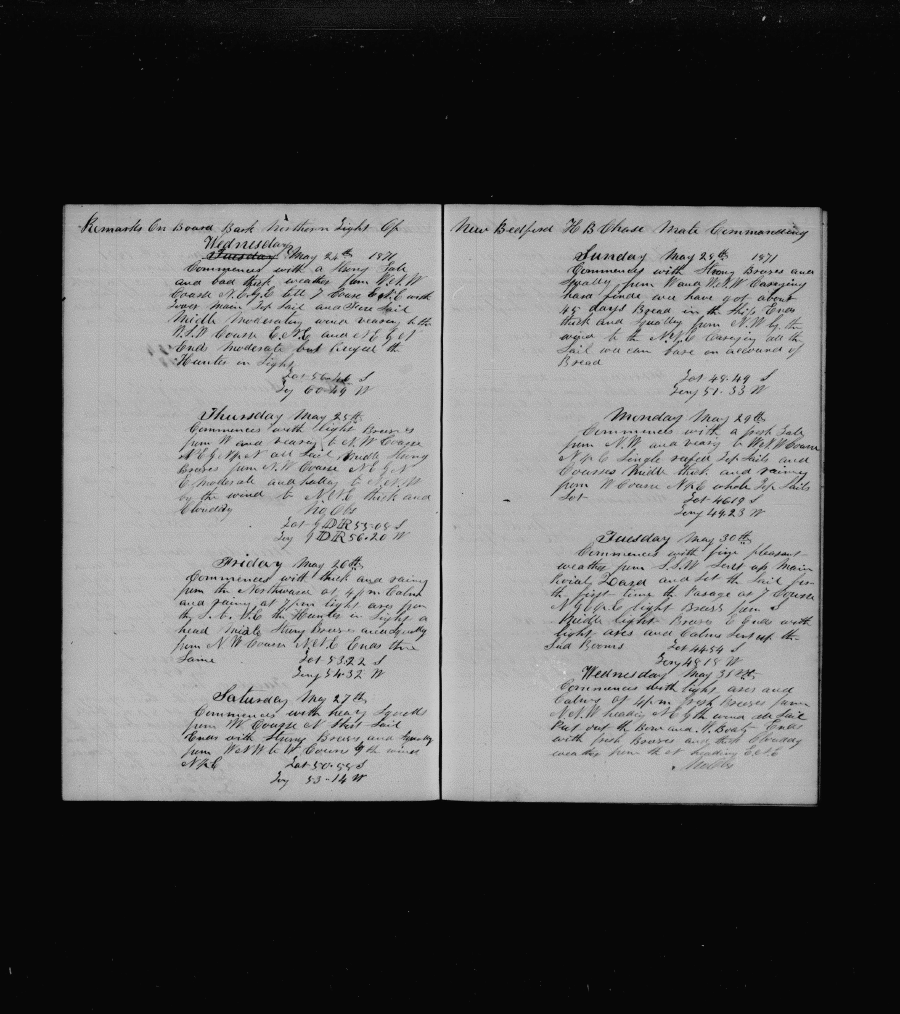 Remarks On Board Bark Northern Light Of
Wednesday
Tuesday May 24th 1871
Commences with a Strong Gale
and bad thick weather from W.N.W
Course N.E by E till 7 Course E by N.E with
lower main Top Sail and Fore Sail
Middle Moderating wind veering to the
W.S.W Course E.N.E and N E by N
End moderate but ruged the
Hunter in Sight
Lat 56-44 S
Log 60-49 W
Thursday May 25th
Commences with light Breezes
from W and veering to N.W Course
N E by N all Sail Middle Strong
Breezes from N.W Course N E by N
E moderate and haling to N.N.W
by the wind to N.N.E thick and
Cloudy No Obs
Lat by DR 55-05 S
Log by DR 56-20 W
Friday May 26th
Commences with thick and rainy
from the Northward at 4 pm Calm
and rainy at 7 pm light ares from
the S.E. the Hunter in Sight a
head Middle Strong Breezes and Squally
from N W Course N.N.E Ends the
Same Lat 53-22 S
Long 54-32 W
Saturday May 27th
Commences with heavy Squalls
from W Course N Short Sail
Ends with Strong Breezes and Squally
from W.N.W to W Course by the wind
N by E Lat 50-55 S
Log 53-14 W
New Bedford H B Chase Mate Commanding
Sunday May 28th 1871
Commences with Strong Breezes and
Squally from W and W.N.W Carrying
hard finds we have got about
45 days Bread in the Ship Ends
thick and Squally from N.W by the
wind to the N by E Carrying all the
Sail we can bare on account of
Bread
Lat 48-49 S
Long 51-33 W
Monday May 29th
Commences with a fresh Gale
from N.W and veering to W.N.W Course
N by E Single reefed Top Sails and
Courses Middle thick and rainey
from W Course N by E whole Top Sails
Set Lat 46-19 S
Long 49-23 W
Tuesday May 30th
Commences with fine pleasant
weather from S.S.W Sent up Main
Roial Yard and Set the Sail for
the first time the Pasage at 7 Course
N by E light Breezes from S
Middle light Breezes E Ends with
light ares and Calms Sent up the
Stud Booms Lat 44-54 S
Long 48-18 W
Wednesday May 31st
Commences with light ares and
Calms at 4 pm fresh Breezes from
N.N.W heading N E by the wind all Sail
Put out the Bow and W. Boats Ends
with fresh Breezes and thick Cloudey
weather from the N heading E.N.E
No Obs